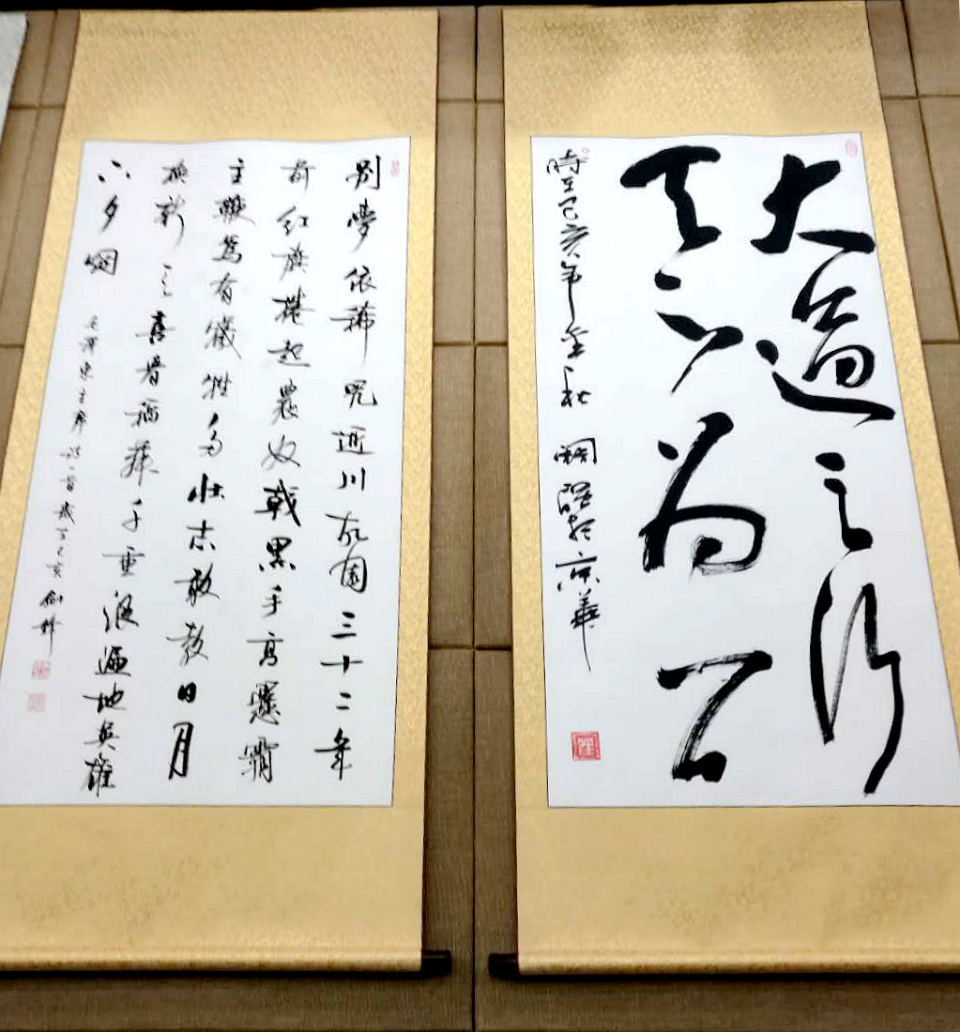 大道之行
天下为公
時在己亥年金秋
京華
别夢依稀咒逝川故園三十二年
前红旗捲起農奴戟黑手高懸霸
主鞭為有犧牲多壮志敢教日月
換新天喜看稻菽千重浪遍地英雄
下夕烟
毛澤東主席詩一首歲在己亥